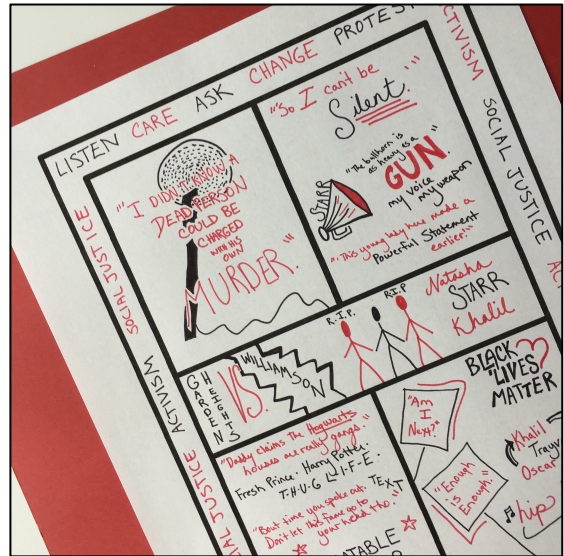 LISTEN CARE ASK CHANGE PROTEST
ACTIVISM
SOCIAL JUSTICE
SOCIAL JUSTICE
ACTIVISM
SOCIAL JUSTICE
"I DIDN'T KNOW A
DEAD PERSON
COULD BE
CHARGED
WITH HIS
OWN
MURDER."
"So I can't be
Silent."
STARR
"The bullhorn is
as heavy as a
GUN."
my voice
my weapon
"This young lady here made a
Powerful Statement
earlier."
GARDEN
HEIGHTS
VS.
WILLIAMSON
R.I.P
R.I.P
Natasha
STARR
Khalil
"Daddy claims the Hogwarts
houses are really gangs."
Fresh Prince. Harry Potter.
T-H-U-G L-I-F-E.
TEXT
"Bout time you spoke out.
Don't let this fame go to
your head tho."
BLACK
LIVES
MATTER
"Am
I
Next?"
"Enough
is
Enough."
Khalil
Oscar
hip